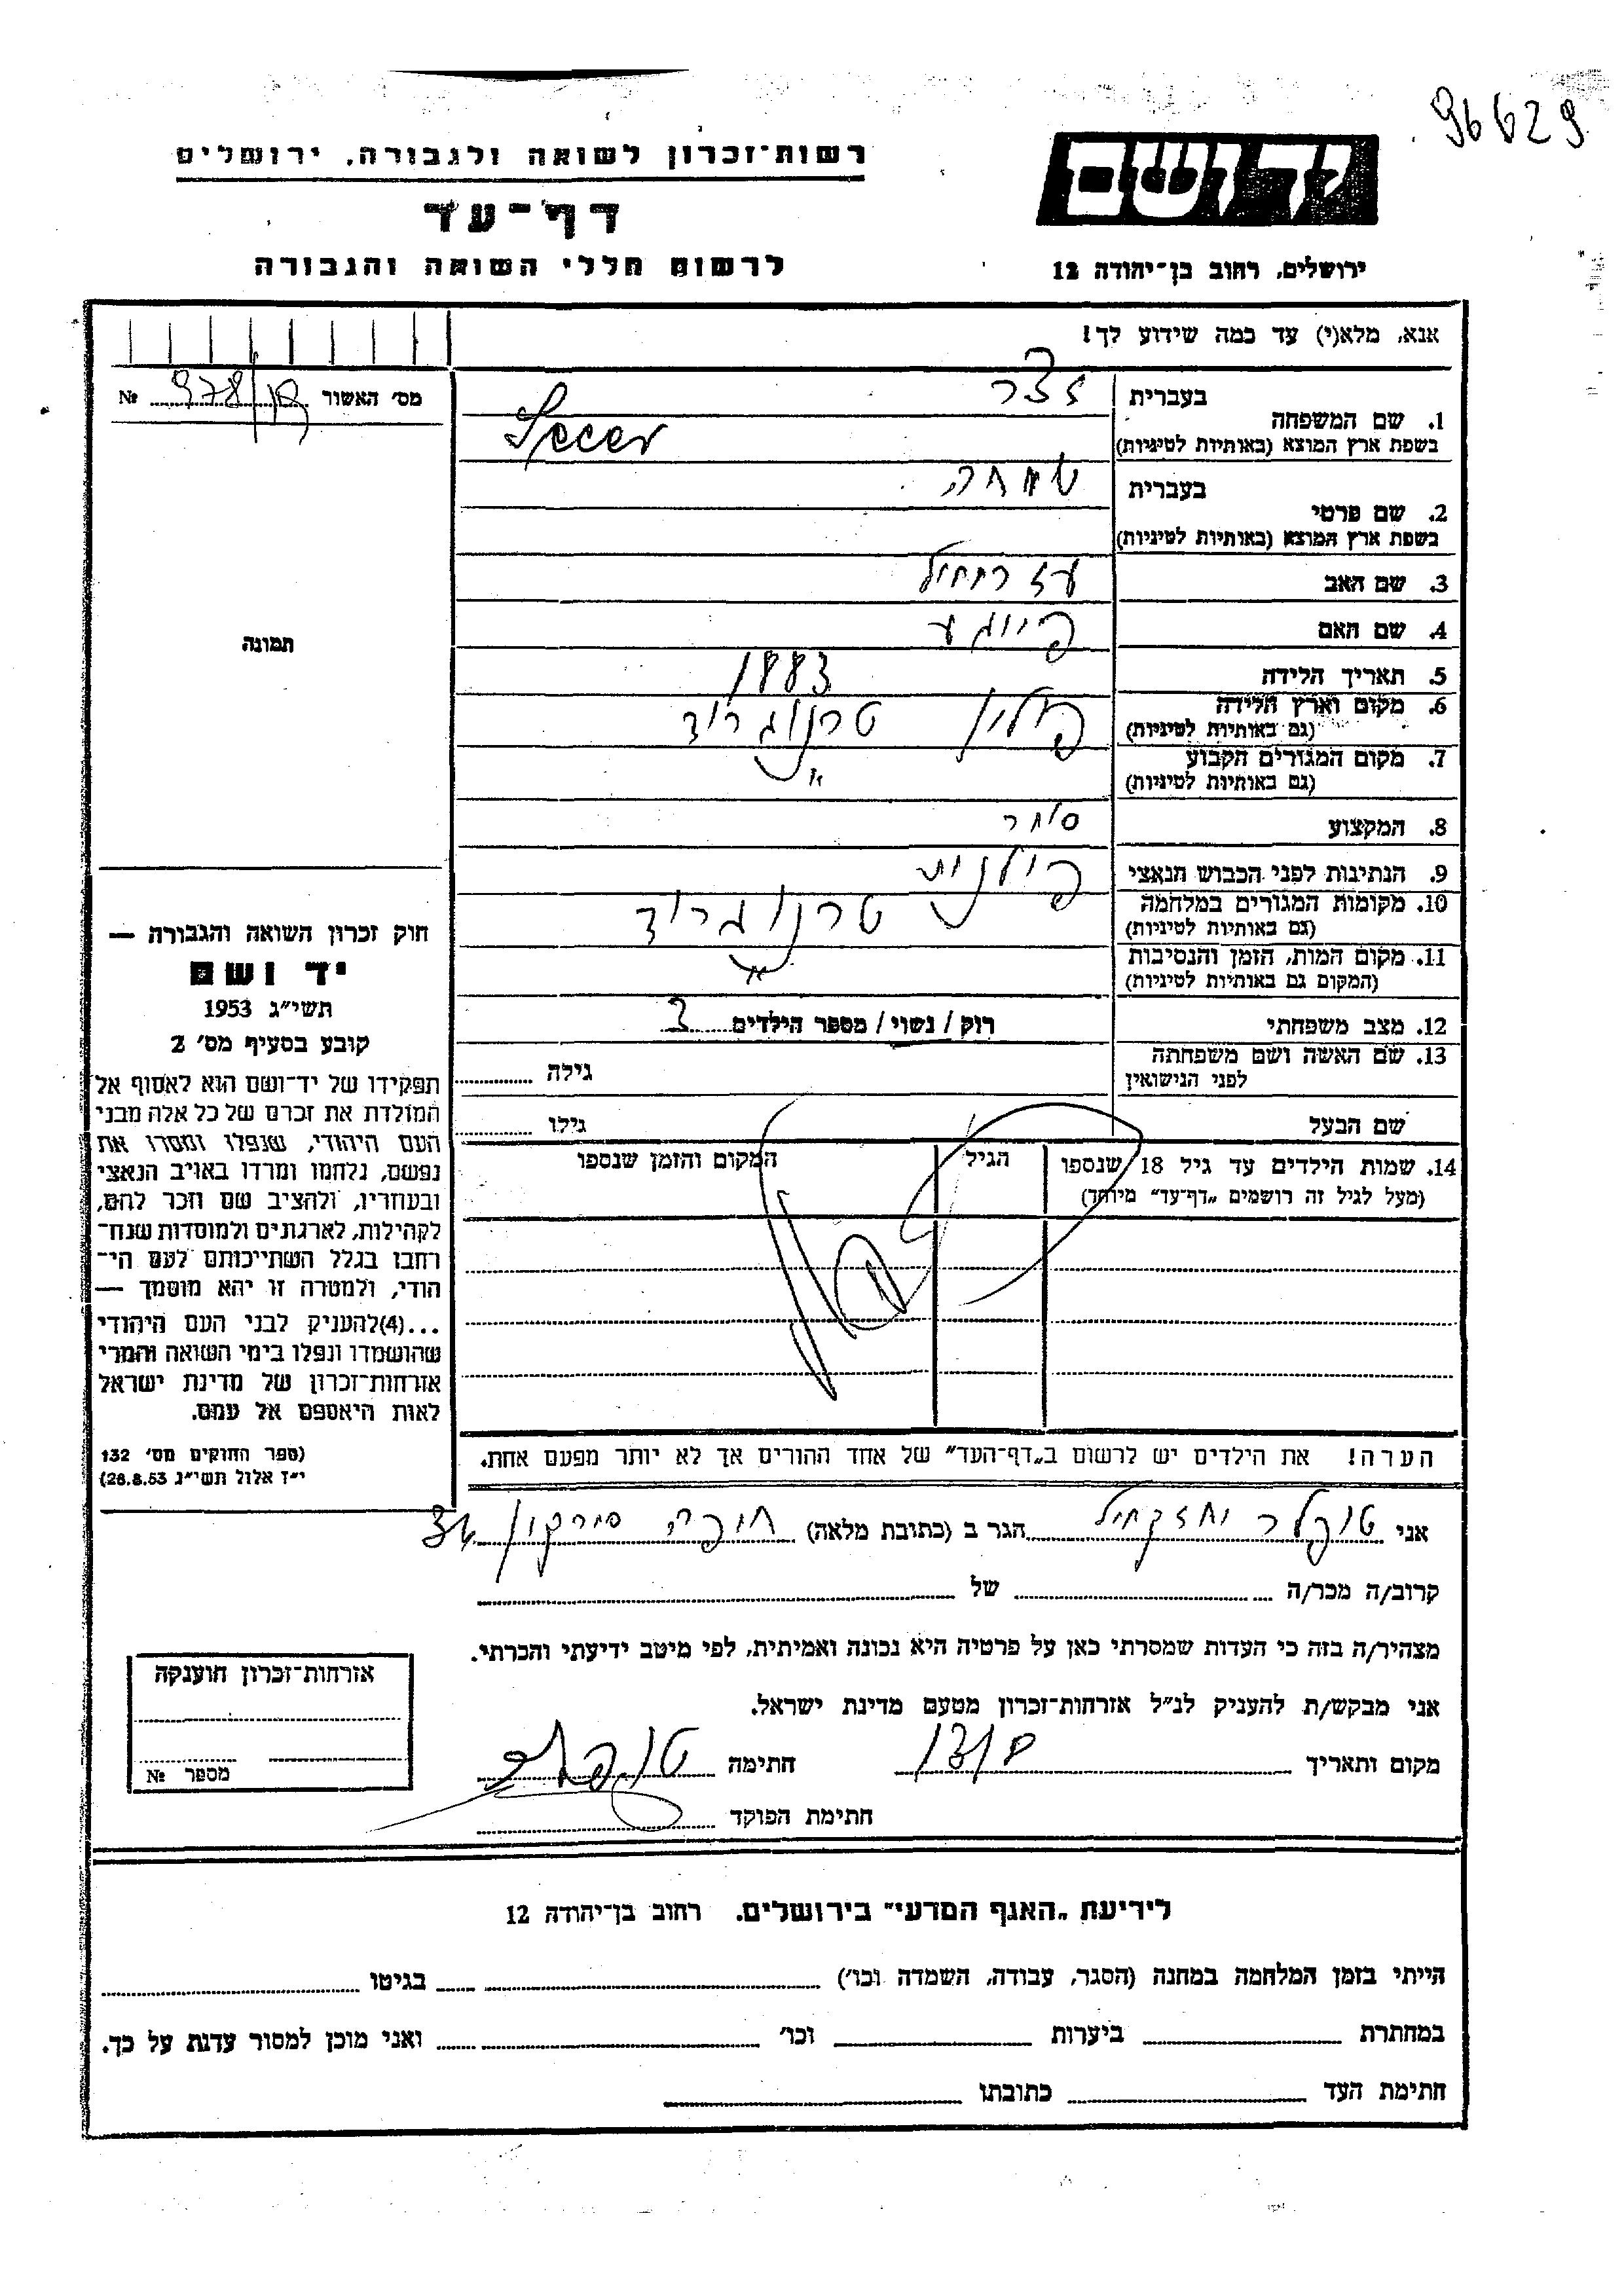 96629
יד ושם
רשות־זכרון לשואה ולגבורה, ירושלים
דף־עד
ירושלים, רחוב בן־יהודה 12
לרשום חללי השואה והגבורה
אנא, מלא(י) עד כמה שידוע לך!
מס׳ האשור 978 №
1. שם המשפחה
בעברית זצר
בשפת ארץ המוצא (באותיות לטיניות) Secer
2. שם פרטי
בעברית שמחה
בשפת ארץ המוצא (באותיות לטיניות)
3. שם האב
4. שם האם
5. תאריך הלידה 1883
6. מקום וארץ הלידה פולין טרנוגרוד
(גם באותיות לטיניות)
7. מקום המגורים הקבוע "
(גם באותיות לטיניות)
8. המקצוע סוחר
9. הנתינות לפני הכבוש הנאצי פולנית
10. מקומות המגורים במלחמה טרנוגרוד
(גם באותיות לטיניות)
11. מקום המות, הזמן והנסיבות "
(המקום גם באותיות לטיניות)
12. מצב משפחתי רווק / נשוי / מספר הילדים 3
13. שם האשה ושם משפחתה
לפני הנישואין גילה
שם הבעל גילו
14. שמות הילדים עד גיל 18 שנספו הגיל המקום והזמן שנספו
(מעל לגיל זה רושמים „דף־עד״ מיוחד)
הערה! את הילדים יש לרשום ב„דף־העד״ של אחד ההורים אך לא יותר מפעם אחת.
תמונה
חוק זכרון השואה והגבורה —
יד ושם
תשי״ג 1953
קובע בסעיף מס׳ 2
תפקידו של יד־ושם הוא לאסוף אל
המולדת את זכרם של כל אלה מבני
העם היהודי, שנפלו ומסרו את
נפשם, נלחמו ומרדו באויב הנאצי
ובעוזריו, ולהציב שם וזכר להם,
לקהילות, לארגונים ולמוסדות שנח־
רבו בגלל השתייכותם לעם הי־
הודי, ולמטרה זו יהא מוסמך —
...(4)להעניק לבני העם היהודי
שהושמדו ונפלו בימי השואה והמרי
אזרחות־זכרון של מדינת ישראל
לאות היאספם אל עמם.
(ספר החוקים מס׳ 132
י״ז אלול תשי״ג 28.8.53)
אני טוקלר יחזקאל הגר ב (כתובת מלאה) חיפה
קרוב/ה מכר/ה של
מצהיר/ה בזה כי העדות שמסרתי כאן על פרטיה היא נכונה ואמיתית, לפי מיטב ידיעתי והכרתי.
אני מבקש/ת להעניק לנ״ל אזרחות־זכרון מטעם מדינת ישראל.
מקום ותאריך חתימה
חתימת הפוקד
אזרחות־זכרון הוענקה
מספר №
לידיעת „האגף המדעי״ בירושלים. רחוב בן־יהודה 12
הייתי בזמן המלחמה במחנה (הסגר, עבודה, השמדה וכו׳) בגיטו
במחתרת ביערות וכו׳ ואני מוכן למסור עדות על כך.
חתימת העד כתובתו